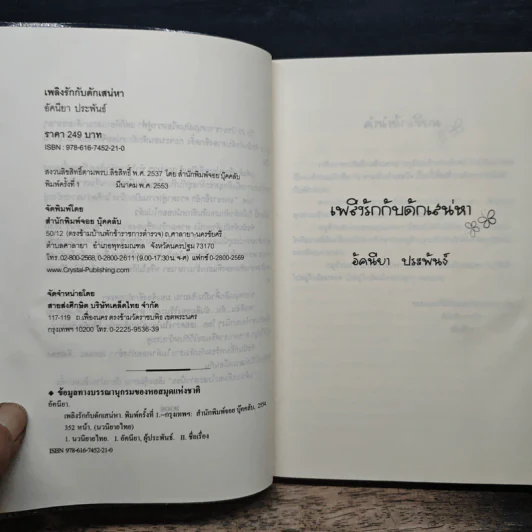 เพลิงรักกับดักเสน่หา
อัคนียา ประพันธ์
ราคา 249 บาท
ISBN : 978-616-7452-21-0
สงวนลิขสิทธิ์ตามพรบ.ลิขสิทธิ์ พ.ศ. 2537 โดย สำนักพิมพ์จอย บุ๊คคลับ
พิมพ์ครั้งที่ 1 มีนาคม พ.ศ. 2553
จัดพิมพ์โดย
สำนักพิมพ์จอย บุ๊คคลับ
50/12 (ตรงข้ามบ้านพักข้าราชการตำรวจ) ถ.ศาลายา-นครชัยศรี
ตำบลศาลายา อำเภอพุทธมณฑล จังหวัดนครปฐม 73170
โทร. 02-800-2568, 0-2800-2611 (9.00-17.30น. จ-ศ) แฟกซ์ 0-2800-2569
www.Crystal-Publishing.com
จัดจำหน่ายโดย
สายส่งศึกษิต บริษัทเคล็ดไทย จำกัด
117-119 ถ.เฟื่องนคร ตรงข้ามวัดราชบพิธ เขตพระนคร
กรุงเทพฯ 10200 โทร. 0-2225-9536-39
◆ ข้อมูลทางบรรณานุกรมของหอสมุดแห่งชาติ
อัคนียา.
เพลิงรักกับดักเสน่หา. พิมพ์ครั้งที่ 1.--กรุงเทพฯ: สำนักพิมพ์จอย บุ๊คคลับ,
352 หน้า. (นวนิยายไทย)
1. นวนิยายไทย. I. อัคนียา, ผู้ประพันธ์. II. ชื่อเรื่อง
ISBN 978-616-7452-21-0
เพลิงรักกับดักเสน่หา
อัคนียา ประพันธ์